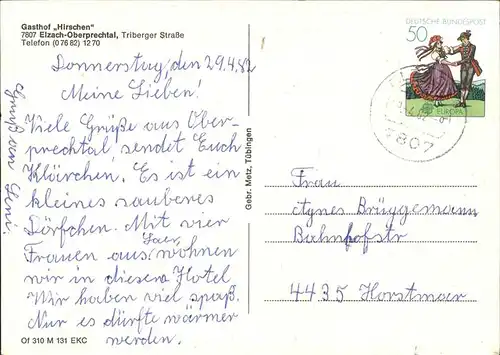 Gasthof „Hirschen"
7807 Elzach-Oberprechtal, Triberger Straße
Telefon (0 76 82) 12 70
Donnerstag, den 29.4.82
Meine Lieben!
Viele Grüße aus Ober-
prechtal, sendet Euch
Klärchen. Es ist ein
kleines sauberes
Dörfchen. Mit vier
Frauen aus Laer, wohnen
wir in diesem Hotel
Wir haben viel spaß.
Nur es dürfte wärmer
werden.
Gruß von
Of 310 M 131 EKC
Gebr. Metz, Tübingen
DEUTSCHE BUNDESPOST
50
EUROPA
7807
Frau
Agnes Brüggemann
Bahnhofstr
4435 Horstmar